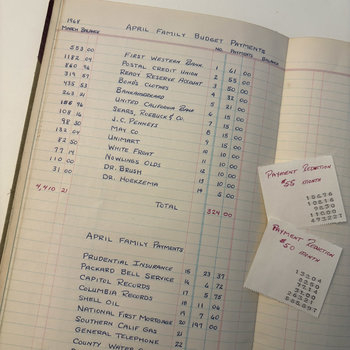 1968
APRIL FAMILY BUDGET PAYMENTS
MARCH BALANCE NO. PAYMENTS BALANCE
553 00 FIRST WESTERN BANK 1 61 00
1182 04 POSTAL CREDIT UNION 2 55 00
860 96 READY RESERVE ACCOUNT 3 50 00
319 57 BOND'S CLOTHES 4 32 00
435 53 BANKAMERICARD 5 21 00
263 21 UNITED CALIFORNIA BANK 6 15 00
186 96 SEARS, ROEBUCK & CO. 7 15 00
108 16 J.C. PENNEYS 8 15 00
98 30 MAY CO 9 15 00
132 04 UNIMART 10 10 00
82 50 WHITE FRONT 11 10 00
77 14 NOWLINGS OLDS 12 10 00
110 00 DR. BRUSH 13 10 00
31 00 DR. HOEKSEMA 14 5 00
4,410 21 TOTAL 324 00
APRIL FAMILY PAYMENTS
PRUDENTIAL INSURANCE 15 23 37
PACKARD BELL SERVICE 16 6 72
CAPITOL RECORDS 17 5 75
COLUMBIA RECORDS 18 11 06
SHELL OIL 19 7 60
NATIONAL FIRST MORTGAGE 20 197 00
SOUTHERN CALIF GAS 21
GENERAL TELEPHONE 22
COUNTY WATER
PAYMENT REDUCTION
$55 MONTH
PAYMENT REDUCTION
$50 MONTH